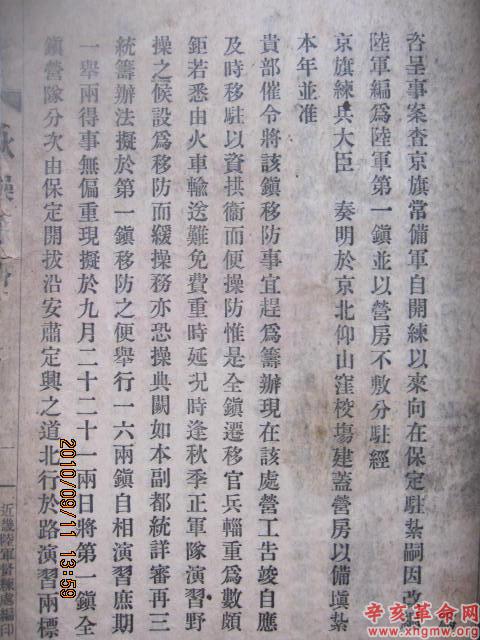 咨呈事案查京旗常備軍自開練以來向在保定駐紮嗣因改
陸軍編爲陸軍第一鎮並以營房不敷分駐經
京旗練兵大臣　奏明於京北仰山窪校塲建蓋營房以備塡紮
本年並准
貴部催令將該鎮移防事宜趕爲籌辦現在該處營工告竣自應
及時移駐以資拱衞而便操防惟是全鎮遷移官兵輜重爲數頗
鉅若悉由火車輸送難免費重時延况時逢秋季正軍隊演習野
操之候設爲移防而緩操務亦恐操典闕如本副都統詳審再三
統籌辦法擬於第一鎮移防之便舉行一六兩鎮自相演習庶期
一舉兩得事無偏重現擬於九月二十二十一兩日將第一鎮全
鎮營隊分次由保定開拔沿安肅定興之道北行於路演習兩標
一
近畿陸軍督練處編印
2010/09/11 13:59
辛亥革命网
www.xhgmw.org